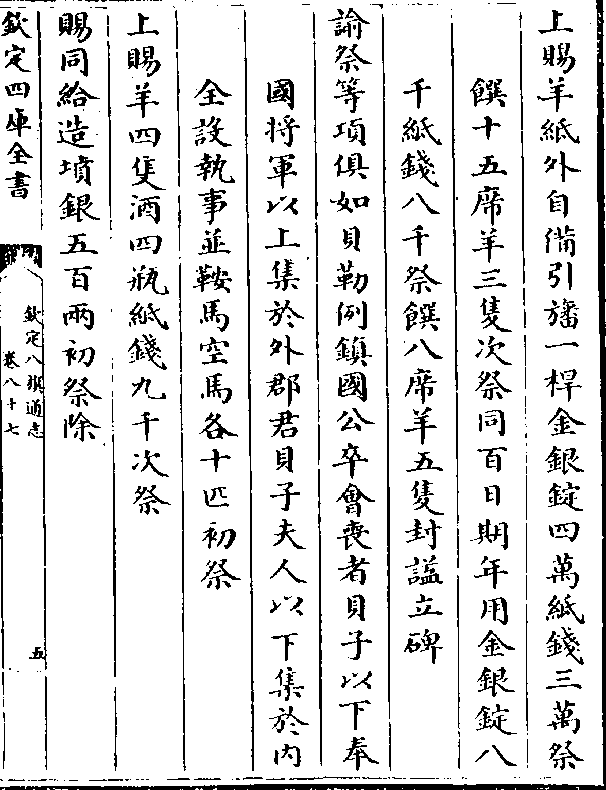 上賜羊紙外自備引旛一桿金銀錠四萬紙錢三萬祭
饌十五席羊三隻次祭同百日期年用金銀錠八
千紙錢八千祭饌八席羊五隻封諡立碑
諭祭等項俱如貝勒例鎮國公卒會喪者貝子以下奉
國將軍以上集於外郡君貝子夫人以下集於内
全設執事並鞍馬空馬各十匹初祭
上賜羊四隻酒四瓶紙錢九千次祭
賜同給造墳銀五百兩初祭除
欽定四庫全書
欽定八旗通志
卷八十七
五